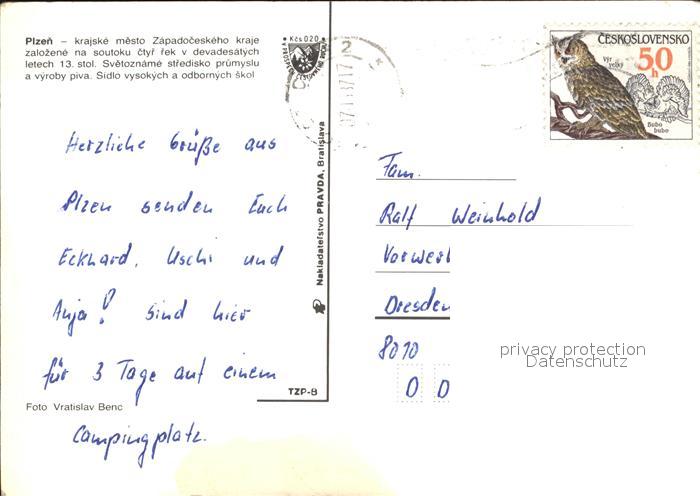 Plzeň – krajské město Západočeského kraje
založené na soutoku čtyř řek v devadesátých
letech 13. stol. Světoznámé středisko průmyslu
a výroby piva. Sídlo vysokých a odborných škol
Kčs 0,20
ČESKOSLOVENSKO
50 h
Výr velký
Bubo bubo
Herzliche Grüße aus
Plzen senden Euch
Eckhard, Uschi und
Anja! Sind hier
für 3 Tage auf einem
Campingplatz.
Nakladatelstvo PRAVDA, Bratislava
TZP-8
Foto Vratislav Benc
Fam.
Ralf Weinhold
Dresden
8010
privacy protection
Datenschutz